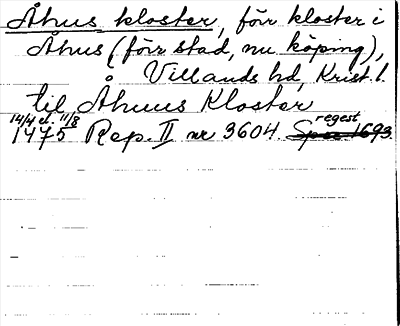 Åhus kloster, förr kloster i
Åhus (förr stad, nu köping),
Villands hd, Krist. l.
til Åhuus Kloster
14/4 el. 11/8 1475 Rep. II nr 3604. regest 1693.